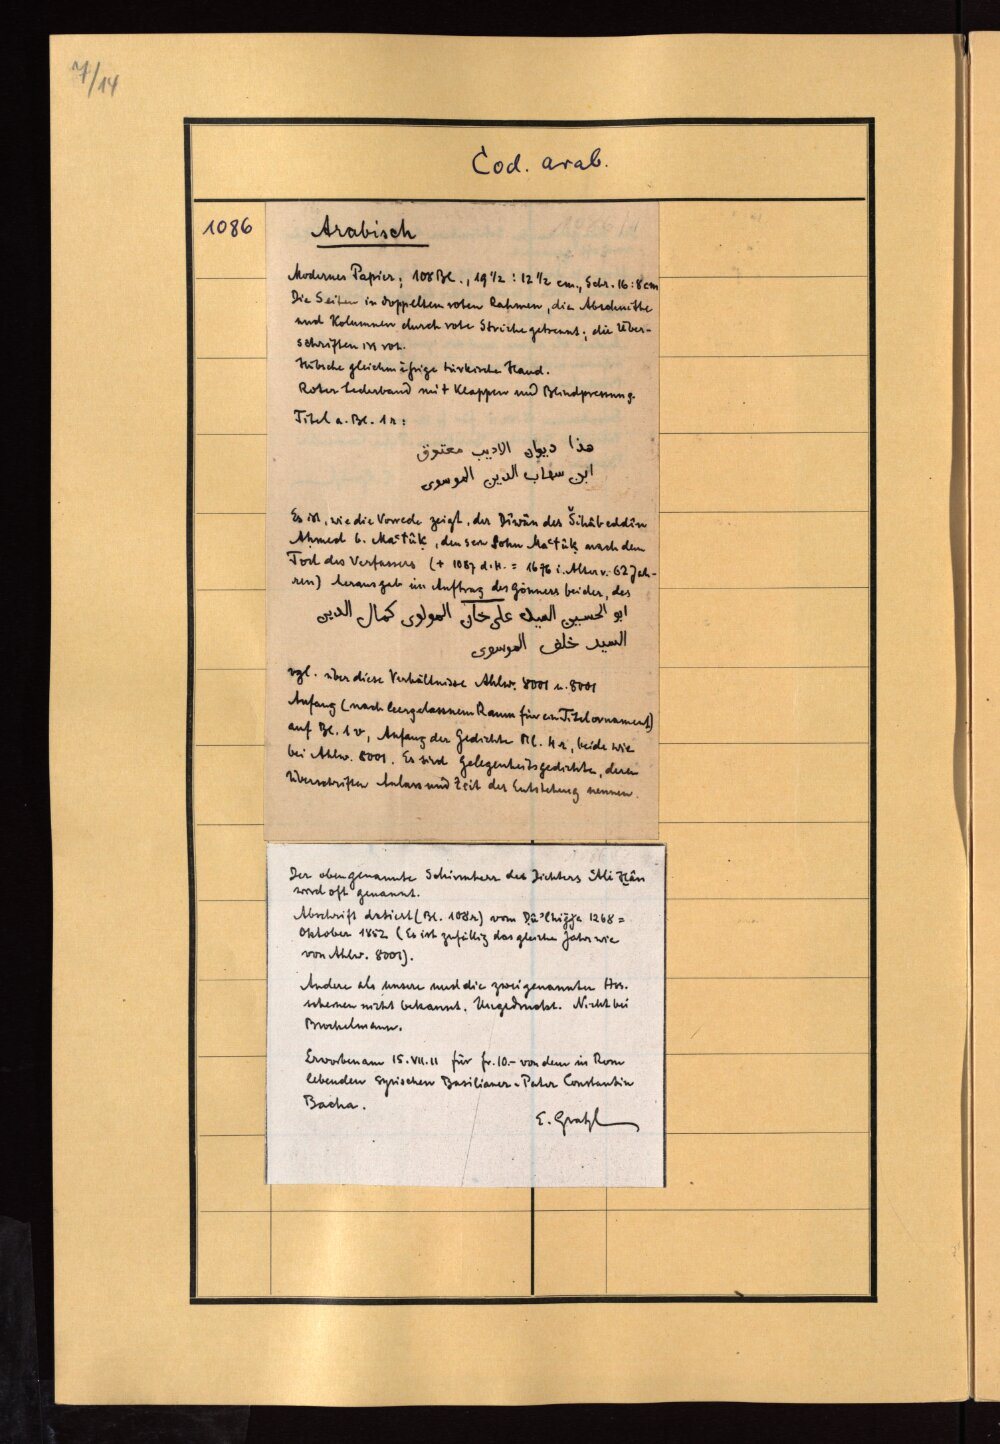 7/14
Cod. arab.
1086
Arabisch
Modernes Papier; 108 Bl., 19½ : 12½ cm., Schr. 16 : 8 cm
Die Seiten in doppeltem roten Rahmen, die Abschnitte
und Kolumnen durch rote Striche getrennt; die Über-
schriften in rot.
Hübsche gleichmäßige türkische Hand.
Roter Lederband mit Klappen und Blindpressung.
Titel a. Bl. 1r:
هذا ديوان الاديب معتوق
ابن سهاب الدين الموسوى
Es ist, wie die Vorrede zeigt, der Dîwân des Šihâbeddîn
Aḥmed b. Maʿtûḳ, den sein Sohn Maʿtûḳ nach dem
Tod des Verfassers (+ 1087 d.H. = 1676 i. Alter v. 62 Jah-
ren) herausgab im Auftrag des Gönners beider, des
ابو الحسين السيد على خان المولوى كمال الدين
السيد خلف الموسوى
vgl. über diese Verhältnisse Ahlw. 8001 u. 8001
Anfang (nach leergelassenem Raum für ein Titelornament)
auf Bl. 1v, Anfang der Gedichte Bl. 4r, beide wie
bei Ahlw. 8001. Es sind Gelegenheitsgedichte, deren
Überschriften Anlass und Zeit der Entstehung nennen.
Der obengenannte Schirmherr des Dichters ʿAli Ḫân
wird oft genannt.
Abschrift datiert (Bl. 108r) vom Ḏû'lḥiǧǧe 1268 =
Oktober 1852 (Es ist zufällig das gleiche Jahr wie
von Ahlw. 8001).
Andere als unsere und die zwei genannten Hss.
scheinen nicht bekannt. Ungedruckt. Nicht bei
Brockelmann.
Erworben am 15.VII.11 für fr. 10.- von dem in Rom
lebenden syrischen Basilianer-Pater Constantin
Bacha.
E. Gratzl